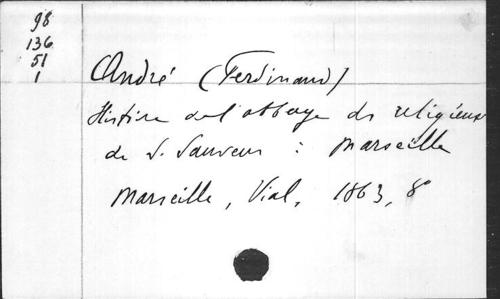 98
136
51
1
André (Ferdinand)
Histoire de l'abbaye des religieuses
de S. Sauveur : Marseille
Marseille, Vial, 1863, 8°